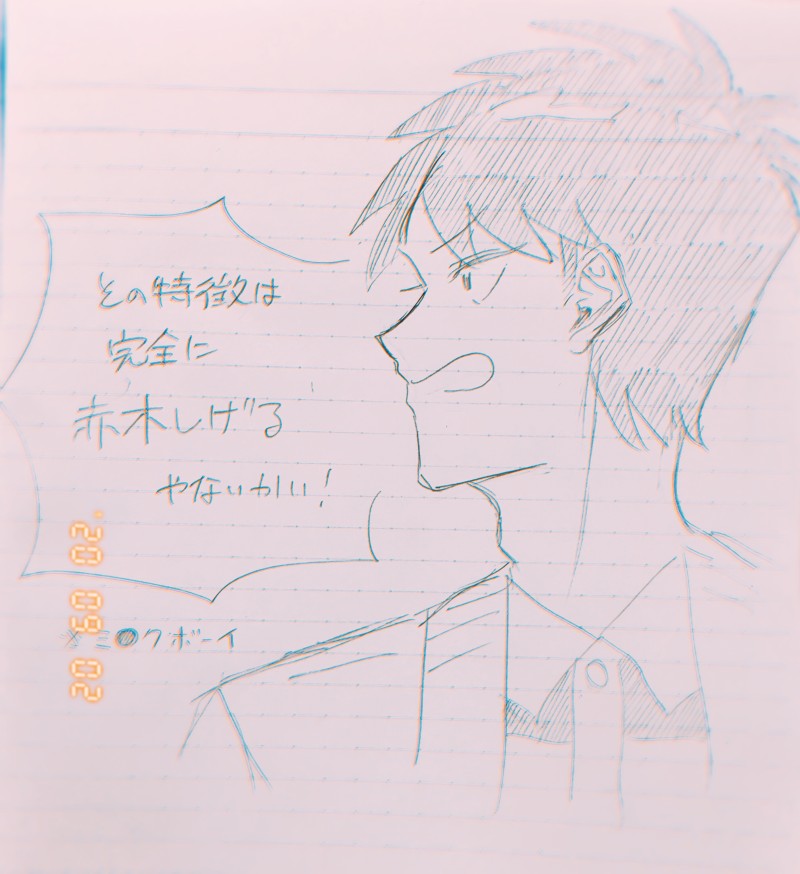 その特徴は
完全に
赤木しげる
やないかい!
※ミ●クボーイ
'02 09 02